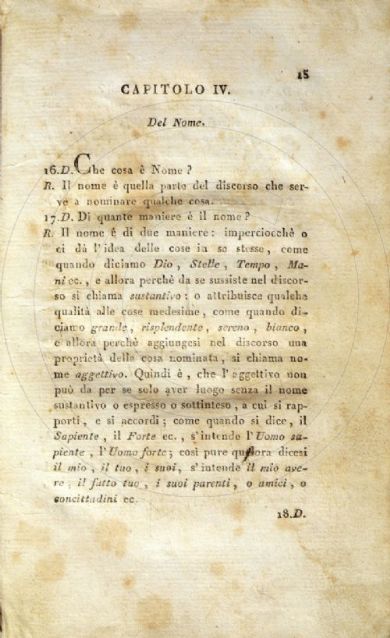 15
CAPITOLO IV.
Del Nome.
16.D. Che cosa è Nome?
R. Il nome è quella parte del discorso che ser-
ve a nominare qualche cosa.
17.D. Di quante maniere è il nome?
R. Il nome é di due maniere: imperciocchè o
ci dà l'idea delle cose in se stesse, come
quando diciamo Dio, Stelle, Tempo, Ma-
ni ec., e allora perchè da se sussiste nel discor-
so si chiama sustantivo: o attribuisce qualche
qualità alle cose medesime, come quando di-
ciamo grande, risplendente, sereno, bianco,
e allora perchè aggiungesi nel discorso una
proprietà della cosa nominata, si chiama no-
me aggettivo. Quindi è, che l'aggettivo non
può da per se solo aver luogo senza il nome
sustantivo o espresso o sottinteso, a cui si rap-
porti, e si accordi; come quando si dice, il
Sapiente, il Forte ec., s'intende l'Uomo sa-
piente, l'Uomo forte; così pure qualora dicesi
il mio, il tuo, i suoi, s'intende il mio ave-
re, il fatto tuo, i suoi parenti, o amici, o
concittadini ec.
18.D.